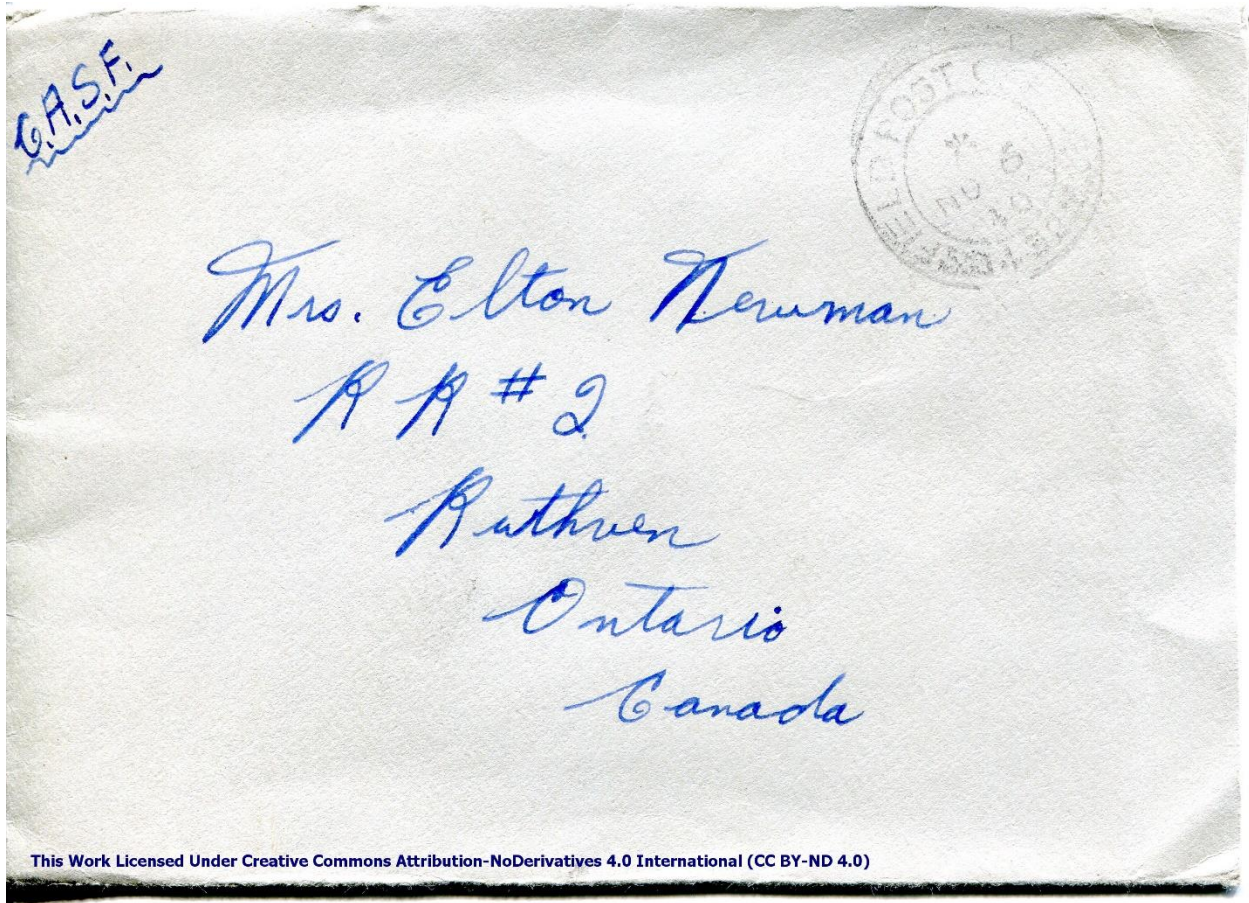 C.A.S.F.
FIELD POST
Mrs. Elton Newman
R R # 2
Ruthven
Ontario
Canada
This Work Licensed Under Creative Commons Attribution-NoDerivatives 4.0 International (CC BY-ND 4.0)